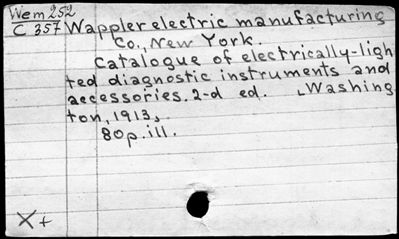 Wem 252
C 357 Wappler electric manufacturing
Co., New York.
Catalogue of electrically-ligh
ted diagnostic instruments and
accessories. 2-d ed. [Washing
ton, 1913,
80p. ill.
X+